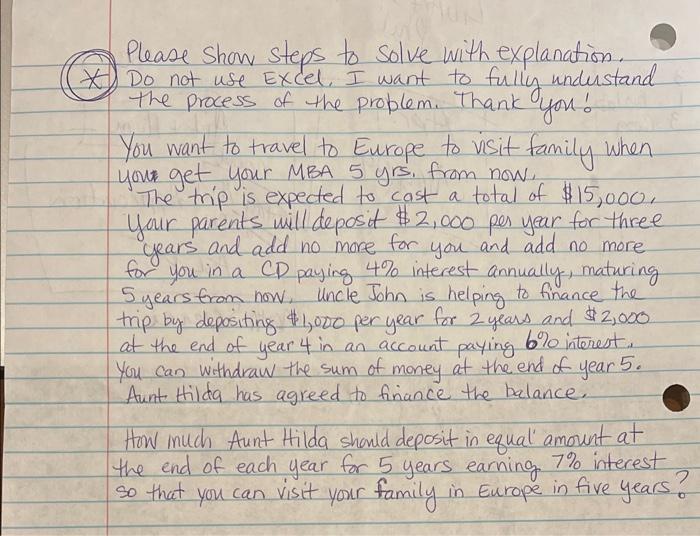 Please show steps to solve with explanation.
* Do not use Excel, I want to fully undustand
the process of the problem. Thank you!
You want to travel to Europe to visit family when
you get your MBA 5 yrs. from now.
The trip is expected to cost a total of $15,000.
Your parents will deposit $2,000 per year for three
years and add no more for you and add no more
for you in a CD paying 4% interest annually, maturing
5 years from now. Uncle John is helping to finance the
trip by depositing $1,000 per year for 2 years and $2,000
at the end of year 4 in an account paying 6% interest.
You can withdraw the sum of money at the end of year 5.
Aunt Hilda has agreed to finance the balance.
How much Aunt Hilda should deposit in equal amount at
the end of each year for 5 years earning 7% interest
so that you can visit your family in Europe in five years?